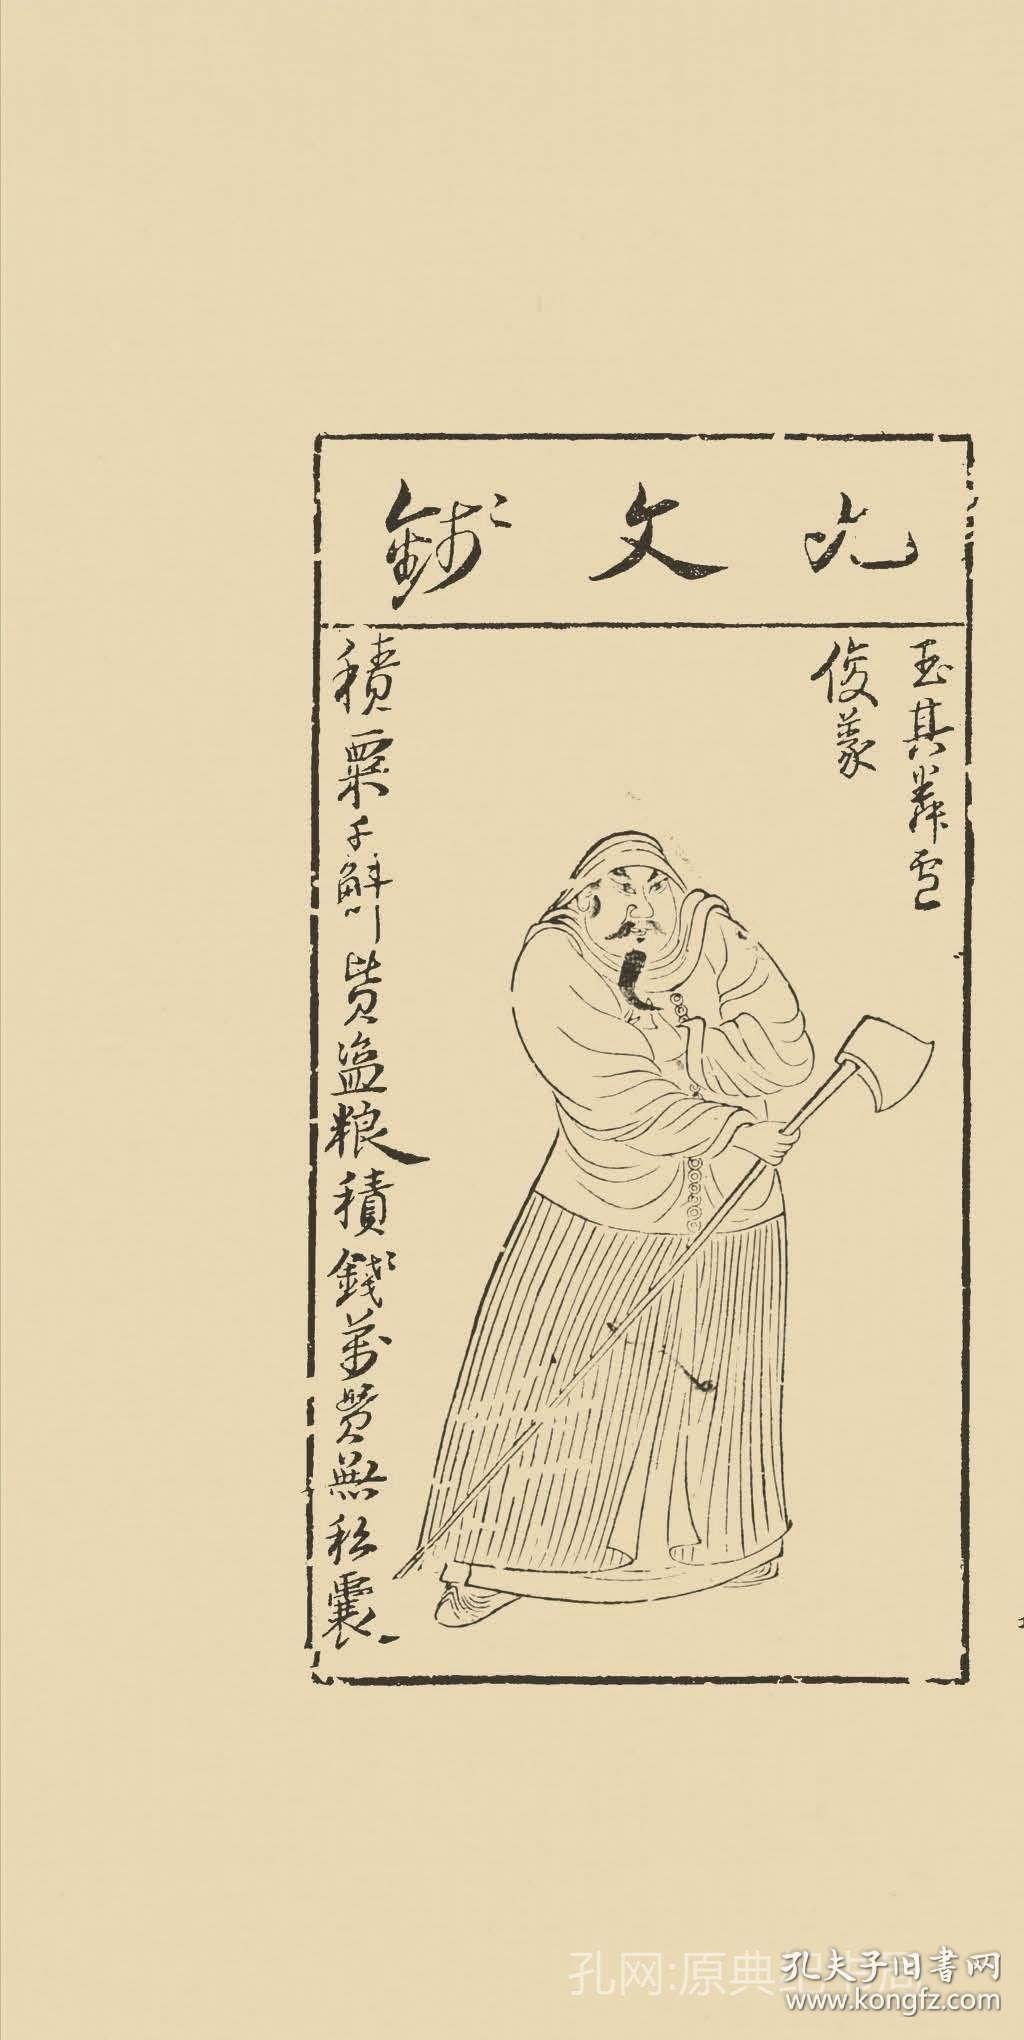 九文錢
玉其粦盧
俊義
積粟千斛貲盜粮積錢萬貫無私囊
孔网:原典纪书局
孔夫子旧书网
www.kongfz.com